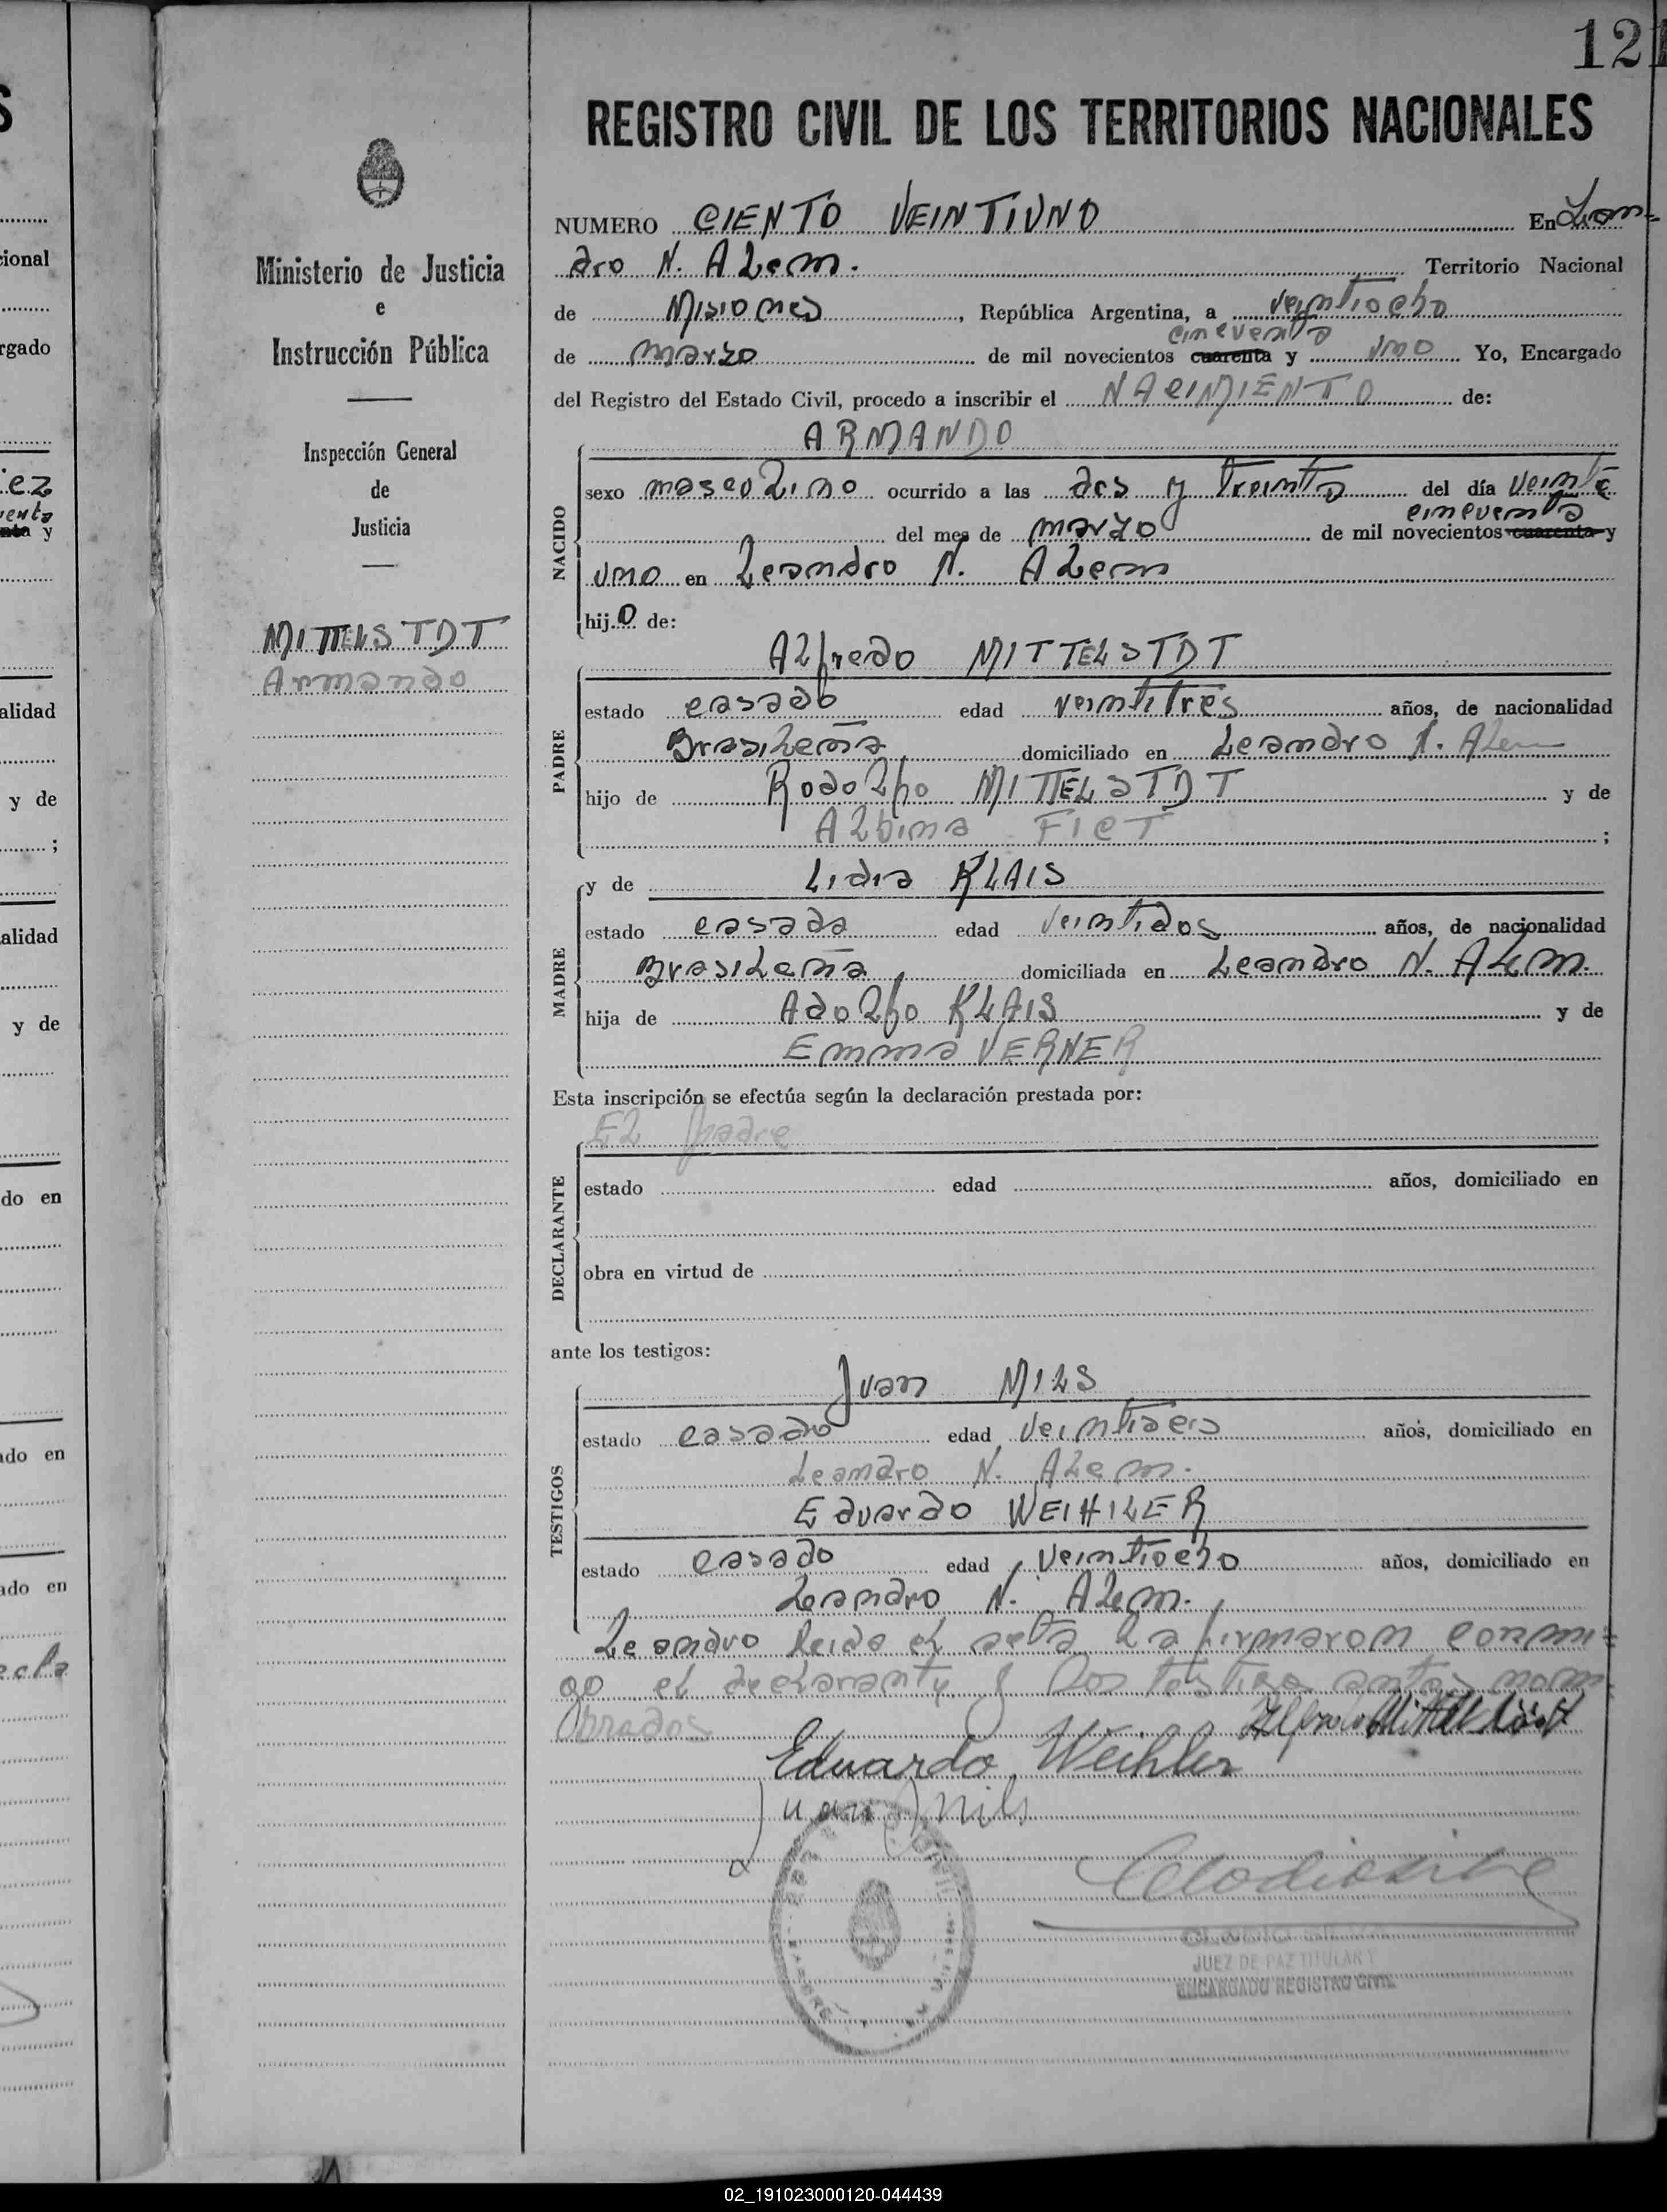 121
REGISTRO CIVIL DE LOS TERRITORIOS NACIONALES
Ministerio de Justicia
e
Instrucción Pública
Inspección General
de
Justicia
MITTELSTDT
Armando
NUMERO CIENTO VEINTIUNO En Lean-
dro N. ALem. Territorio Nacional
de Misiones, República Argentina, a veintiocho
cincuenta
de marzo de mil novecientos cuarenta y uno Yo, Encargado
del Registro del Estado Civil, procedo a inscribir el NACIMIENTO de:
ARMANDO
NACIDO
sexo masculino ocurrido a las dos y treinta del día veinte
cincuenta
del mes de marzo de mil novecientos cuarenta y
uno en Leandro N. ALem
hijo de:
Alfredo MITTELSTDT
PADRE
estado casado edad veintitres años, de nacionalidad
Brasileña domiciliado en Leandro N. Alem
hijo de Rodolfo MITTELSTDT y de
Albina FICT ;
MADRE
y de Lidia KLAIS
estado casada edad veintidos años, de nacionalidad
Brasileña domiciliada en Leandro N. ALem.
hija de Adolfo KLAIS y de
Emma VERNER
Esta inscripción se efectúa según la declaración prestada por:
El padre
DECLARANTE
estado edad años, domiciliado en
obra en virtud de
ante los testigos:
Juan MILS
TESTIGOS
estado casado edad veintiseis años, domiciliado en
Leandro N. ALem.
Eduardo WEIHLER
estado casado edad veintiocho años, domiciliado en
Leandro N. ALem.
Leandro leida el acta la firmaron conmi-
go el declarante y los testigo antes nom
brados
Eduardo Weihler
Juan Mils
CLODIO SILVA
JUEZ DE PAZ TITULAR Y
ENCARGADO REGISTRO CIVIL
ional
rgado
iez
y
alidad
y de
;
alidad
y de
do en
do en
do en
02_191023000120-044439